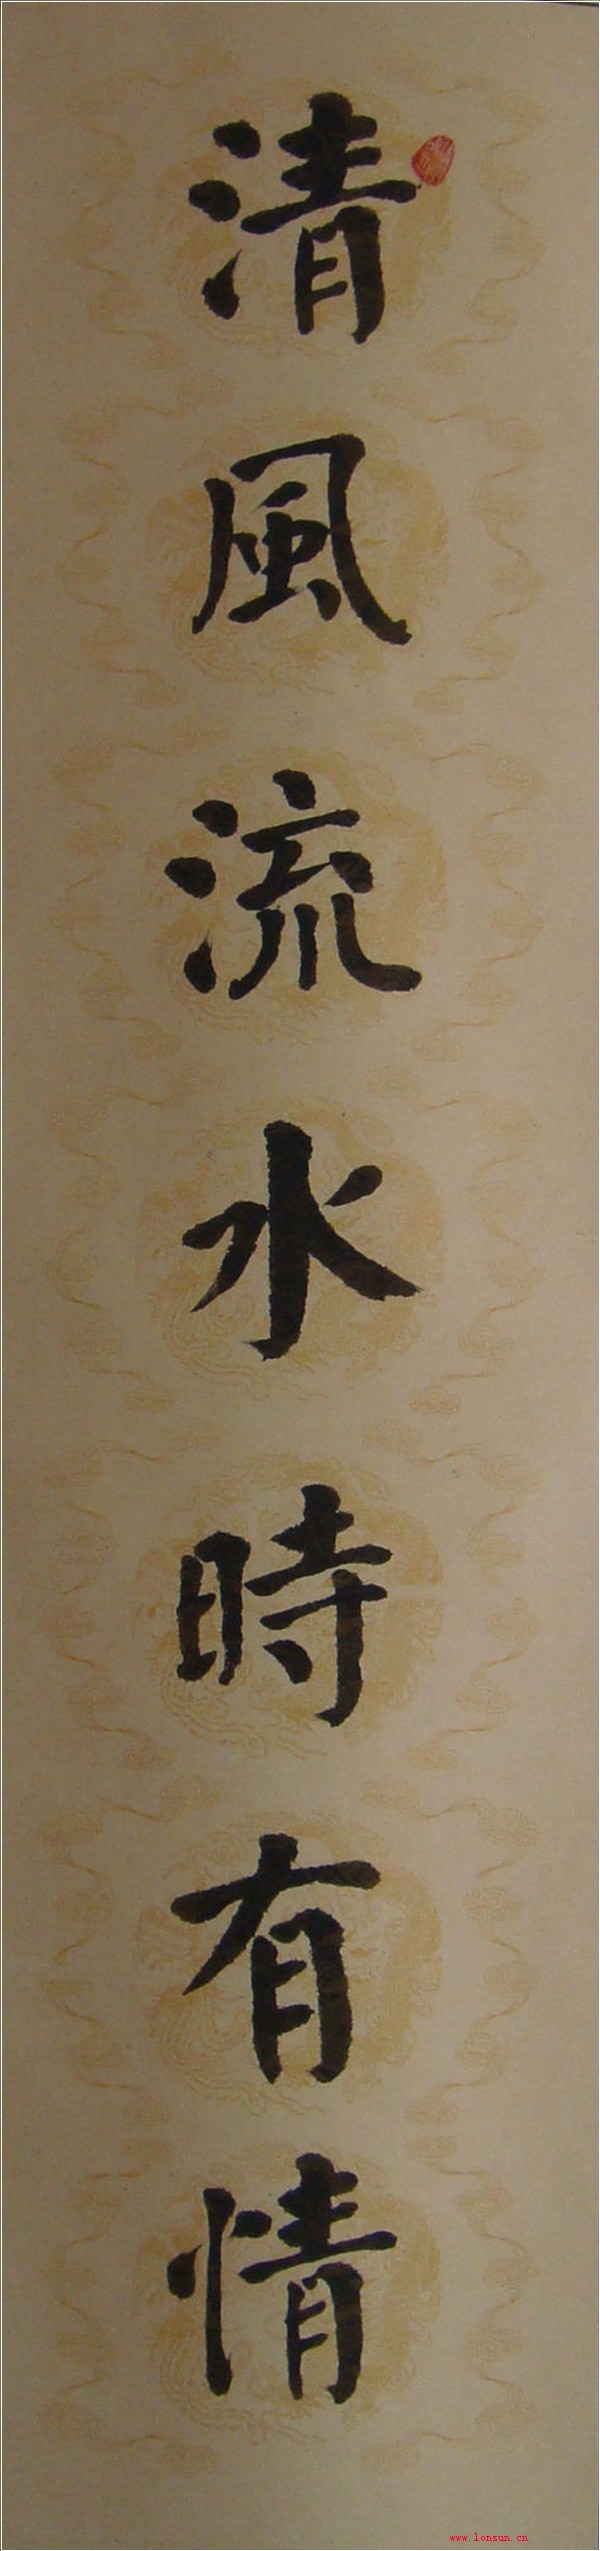 清風流水時有情
www.lonsun.cn